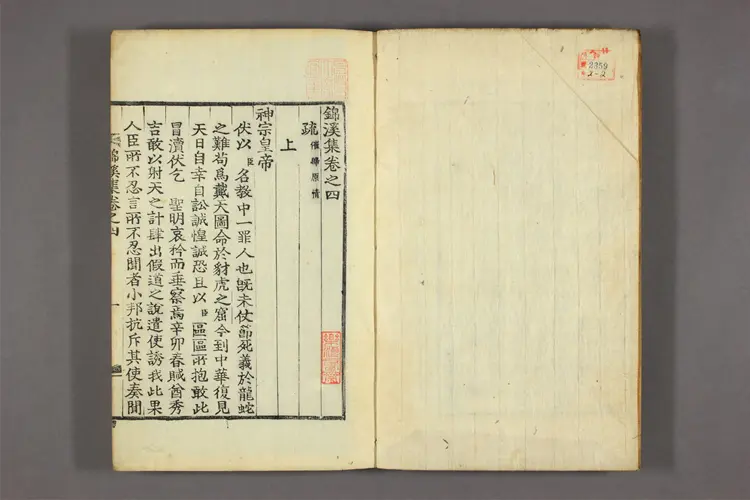 錦溪集卷之四
疏 催歸原情
上
神宗皇帝
伏以 臣 名敎中一罪人也旣未仗節死義於龍蛇
之難苟爲戴天圖命於豺虎之窟今到中華復見
天日自幸自訟誠惶誠恐且以 臣 區區所抱敢此
冒瀆伏乞 聖明哀矜而垂察焉辛卯春賊酋秀
吉敢以射天之計肆出假道之說遣使誘我此果
人臣所不忍言所不忍聞者小邦抗斥其使奏聞
錦溪集卷之四 一
2359
2-2